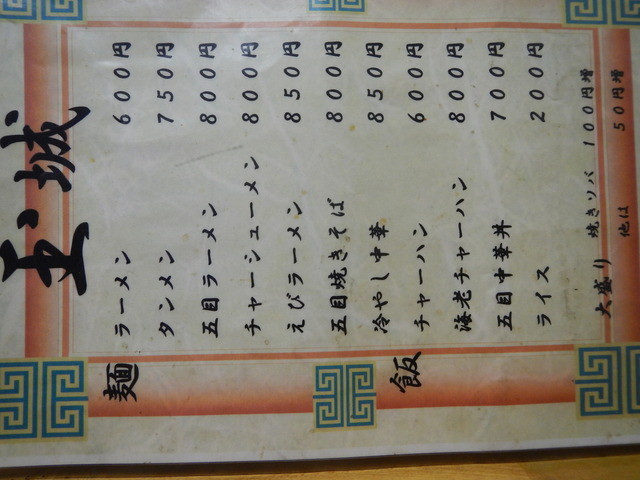 玉城
麺
ラーメン 600円
タンメン 750円
五目ラーメン 800円
チャーシューメン 800円
えびラーメン 850円
五目焼きそば 800円
冷やし中華 850円
飯
チャーハン 600円
海老チャーハン 800円
五目中華丼 700円
ライス 200円
大盛り 焼きソバ 100円増
他は 50円増